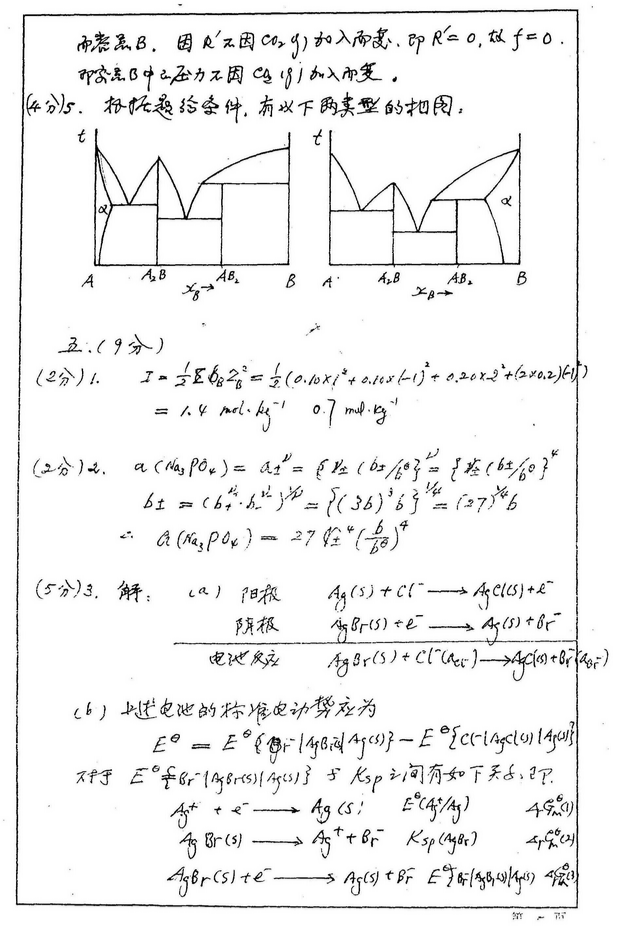 而容器B，因R′不因CO₂(g)加入而变，即R′=0，故f=0．
即容器B中之压力不因CO₂(g)加入而变。
(4分)5．根据题给条件，有以下两类型的相图：
t
t
α
α
A A₂B x_B→ AB₂ B
A A₂B x_B→ AB₂ B
五．(9分)
(2分)1． I = ½Σb_B Z_B² = ½(0.10×1²+0.10×(-1)²+0.20×2²+(2×0.2)(-1)²)
= 1.4 mol·kg⁻¹ 0.7 mol·kg⁻¹
(2分)2． a(Na₃PO₄) = a±^ν = {γ±(b±/b^θ)}^ν = {γ±(b±/b^θ}⁴
b± = (b₊^ν₊·b₋^ν₋)^1/ν = {(3b)³b}^1/4 = (27)^1/4 b
∴ a(Na₃PO₄) = 27γ±⁴(b/b^θ)⁴
(5分)3．解：(a) 阳极 Ag(s) + Cl⁻ ⟶ AgCl(s) + e⁻
阴极 AgBr(s) + e⁻ ⟶ Ag(s) + Br⁻
电池反应 AgBr(s) + Cl⁻(a_Cl⁻) ⟶ AgCl(s) + Br⁻(a_Br⁻)
(b) 上述电池的标准电动势应为
E^θ = E^θ{Br⁻|AgBr(s)|Ag(s)} − E^θ{Cl⁻|AgCl(s)|Ag(s)}
对于 E^θ{Br⁻|AgBr(s)|Ag(s)} 与 Ksp 之间有如下关系，即．
Ag⁺ + e⁻ ⟶ Ag(s) E^θ(Ag⁺/Ag) ΔrG_m^θ(1)
AgBr(s) ⟶ Ag⁺ + Br⁻ Ksp(AgBr) ΔrG_m^θ(2)
AgBr(s) + e⁻ ⟶ Ag(s) + Br⁻ E^θ{Br⁻|AgBr(s)|Ag(s) ΔrG_m^θ(3)